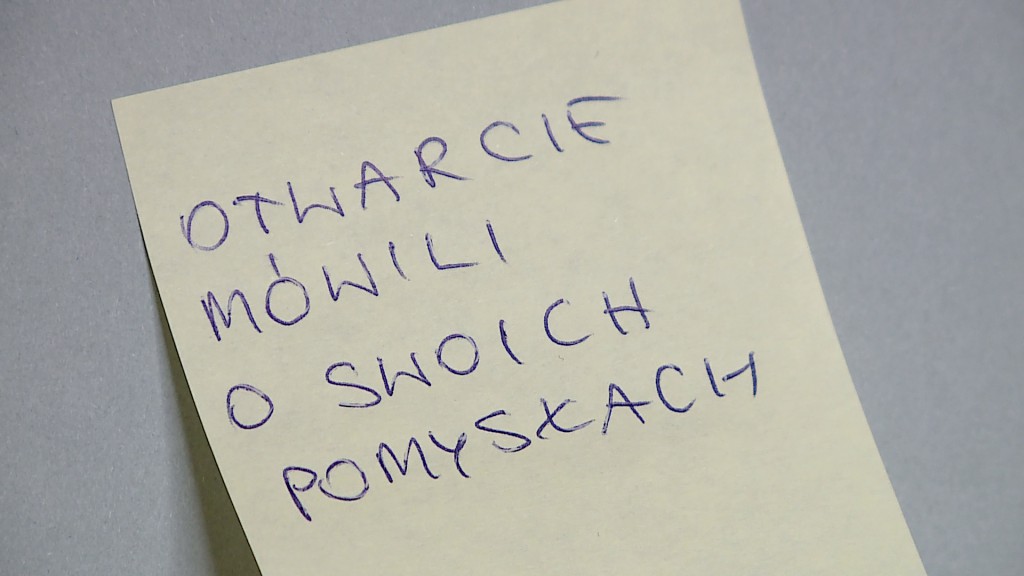 OTWARCIE
MÓWILI
O SWOICH
POMYSŁACH